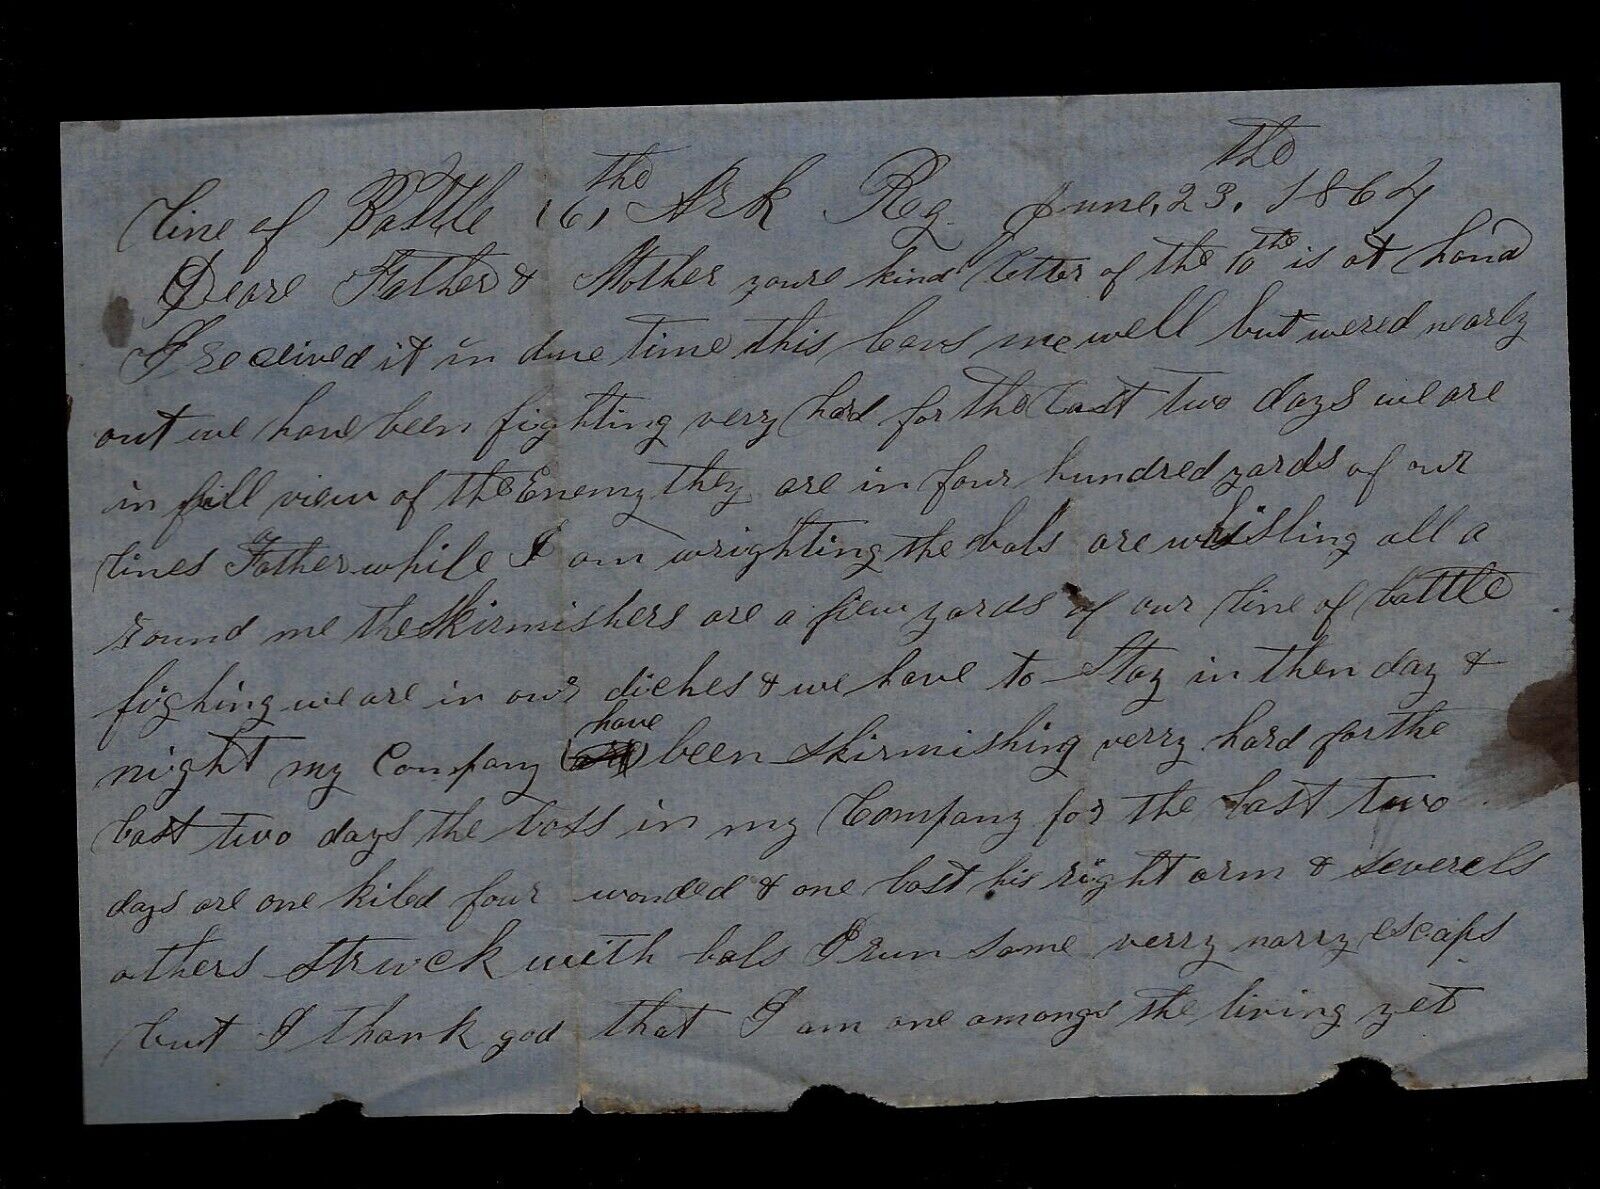 Line of Battle (6, the Ark Reg. June, 23, the 1864
Deare Father & Mother youre kind letter of the 10th is at hand
I received it in due time this leavs me well but wered nearly
out we have been fighting verry hard for the Last two days we are
in full view of the Enemy they are in four hundred yards of our
lines Father while I am wrighting the bals are whistling all a
round me the Skirmishers are a few yards of our line of battle
fighing we are in our diches & we have to Stay in then day &
night my Company have been skirmishing verry hard for the
last two days the loss in my Company for the last two
days are one kiled four wonded & one lost his right arm & severels
others struck with bals I run some verry narry escaps
but I thank god that I am one amongs the living yet